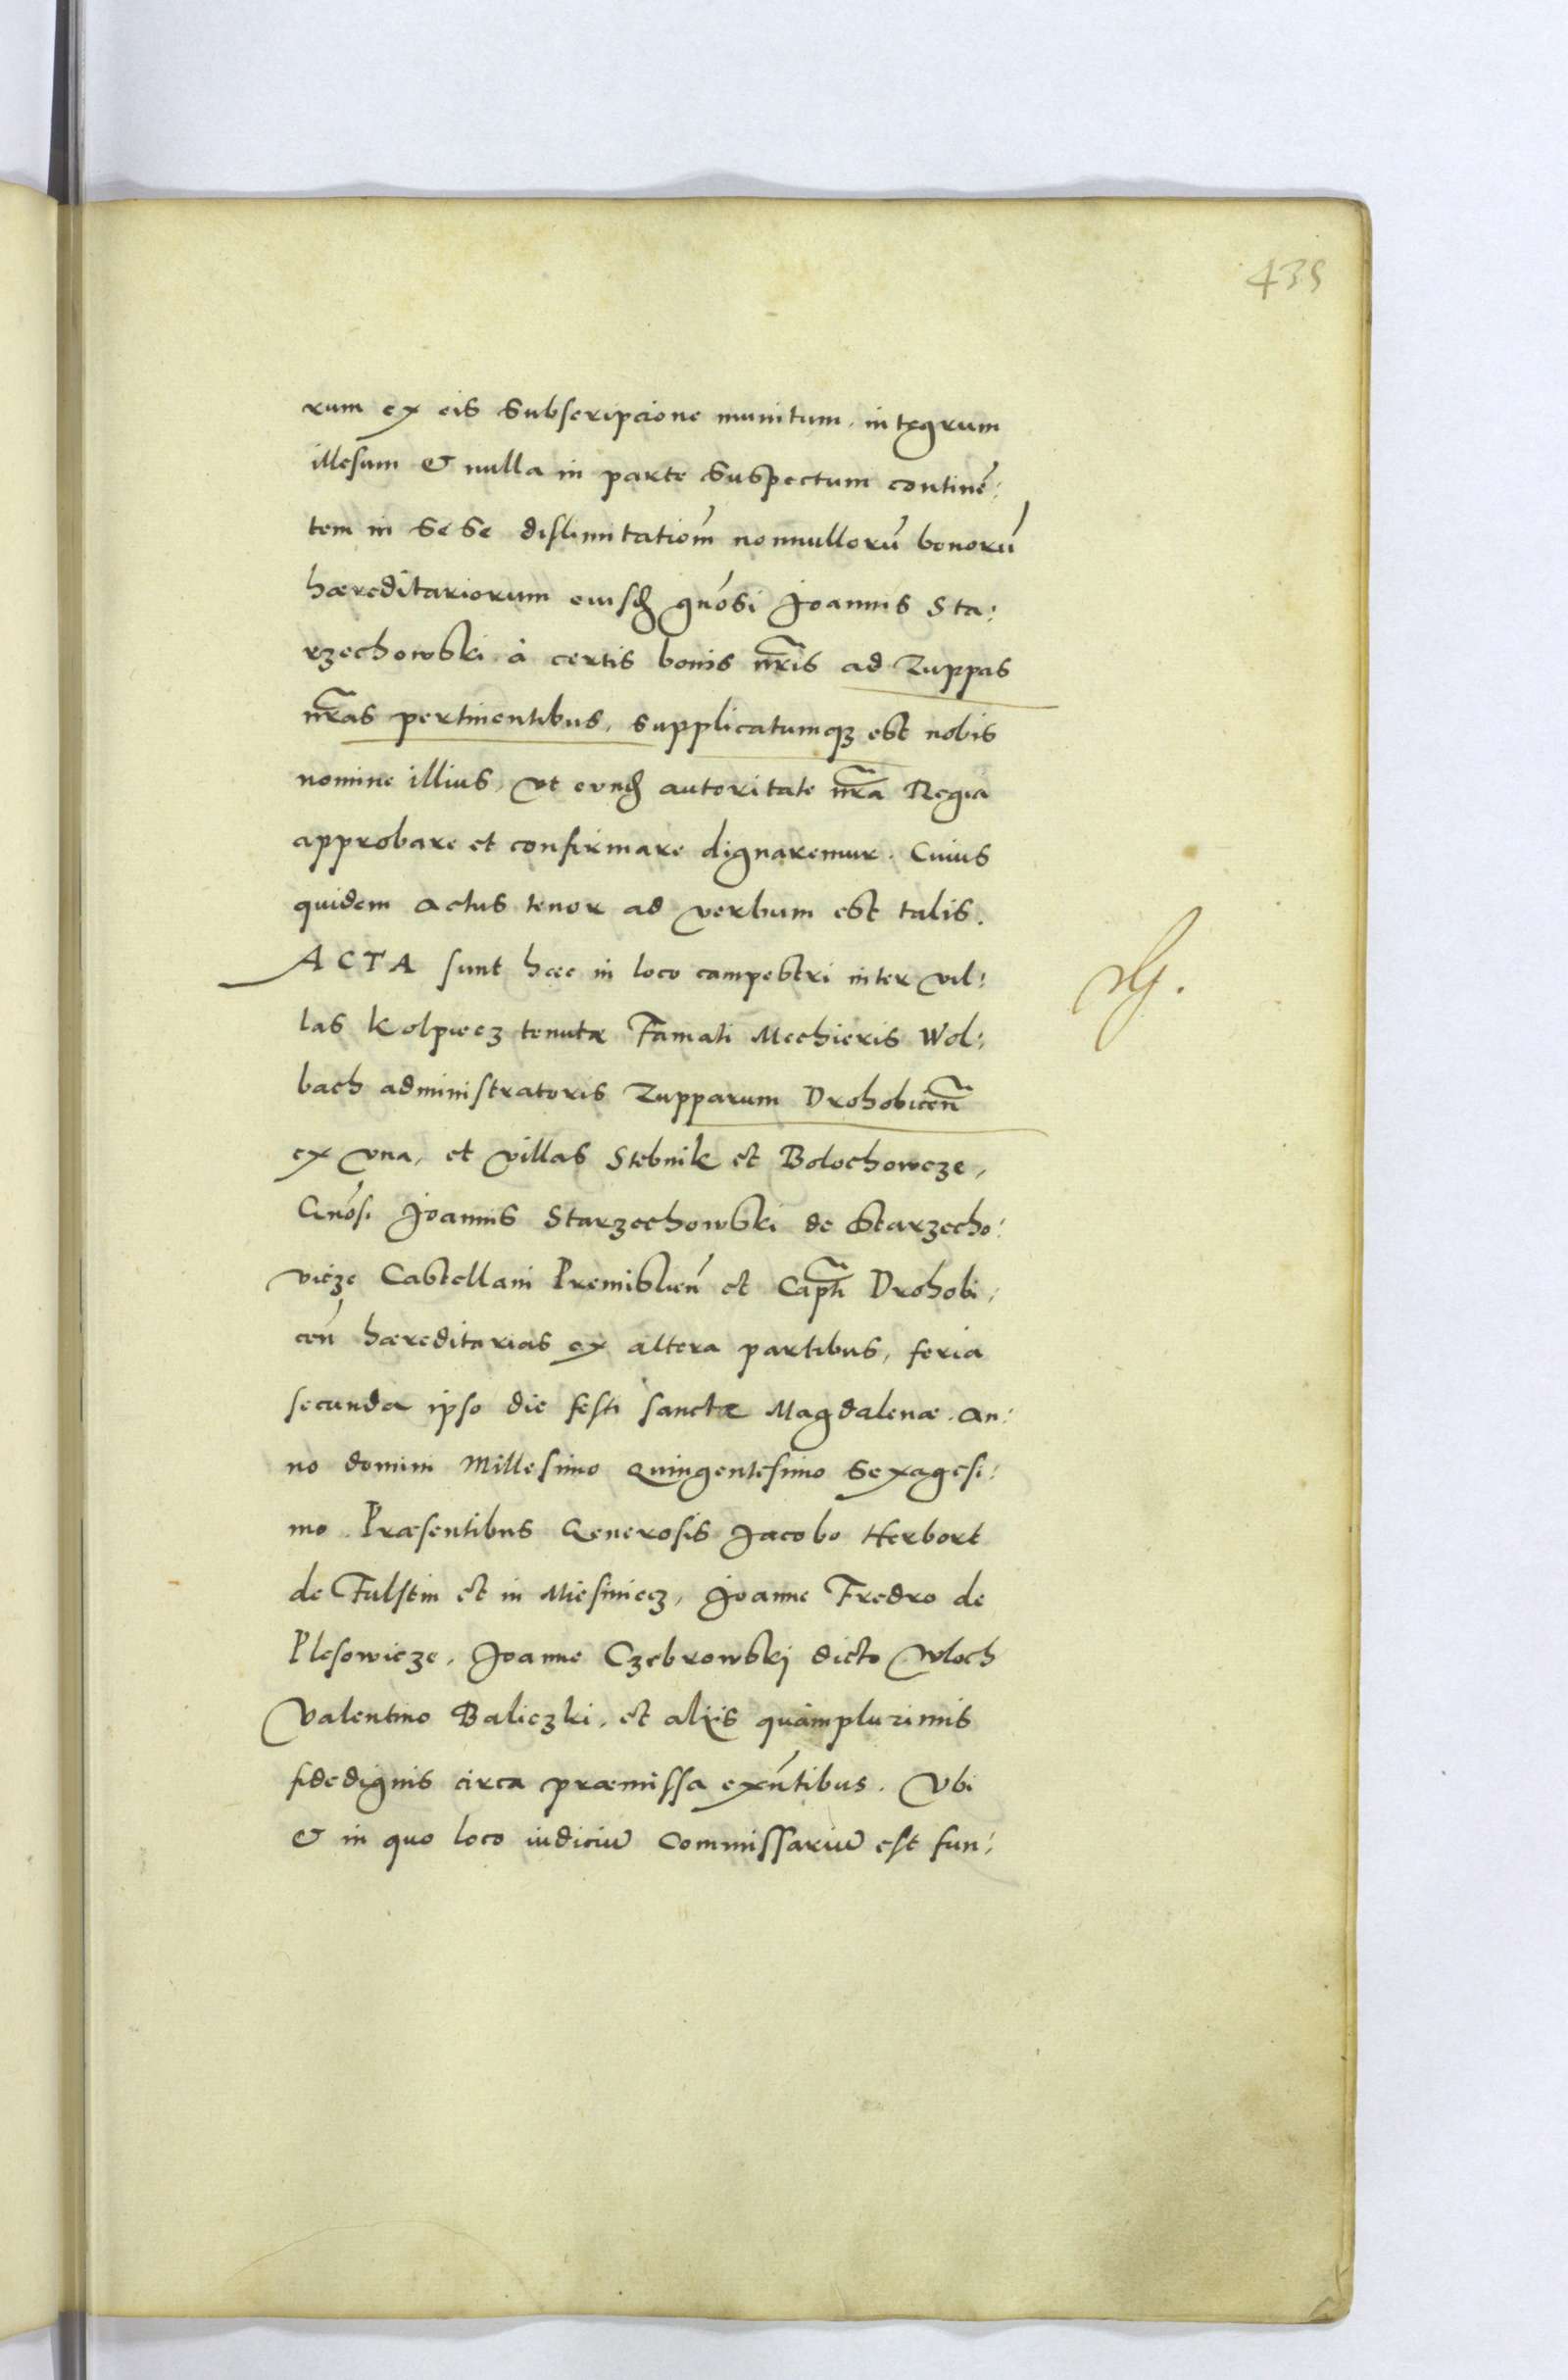 435
rum ex eis subscripcione munitum, integrum
illesum & nulla in parte suspectum continē:
tem in sese dislimitatiom̄ nonnullorū bonorū
hæreditariorum eiusd gnōsi Joannis Sta:
rzechowski à certis bonis nr̃is ad Zuppas
nr̃as pertinentibus, supplicatumqȝ est nobis
nomine illius, vt eund autoritate nr̃a Regia
approbare et confirmare dignaremur. Cuius
quidem actus tenor ad verbum est talis.
ACTA sunt hæc in loco campestri inter vil:
las Kolpiecz tenutæ Famati Mechieris Wol:
bach administratoris Zupparum Drohobicen̄
ex vna, et villas Stebnik et Bolochowcze,
Gnōsi Joannis Starzechowski de Starzecho:
vicze Castellani Premislien̄ et Capti Drohobi:
cen̄ hæreditarias ex altera partibus, feria
secunda ipso die festi sanctæ Magdalenæ. An:
no domini Millesimo Quingentesimo Sexagesi:
mo. Præsentibus Generosis Jacobo Herbort
de Fulstin et in Miesiniecz, Joanne Fredro de
Plesowicze, Joanne Czebrowskj dicto Wloch
Valentino Baliczki, et alijs quàmplurimis
fidedignis circa præmissa exn̄tibus. Vbi
& in quo loco iudiciū Commissariū est fun: